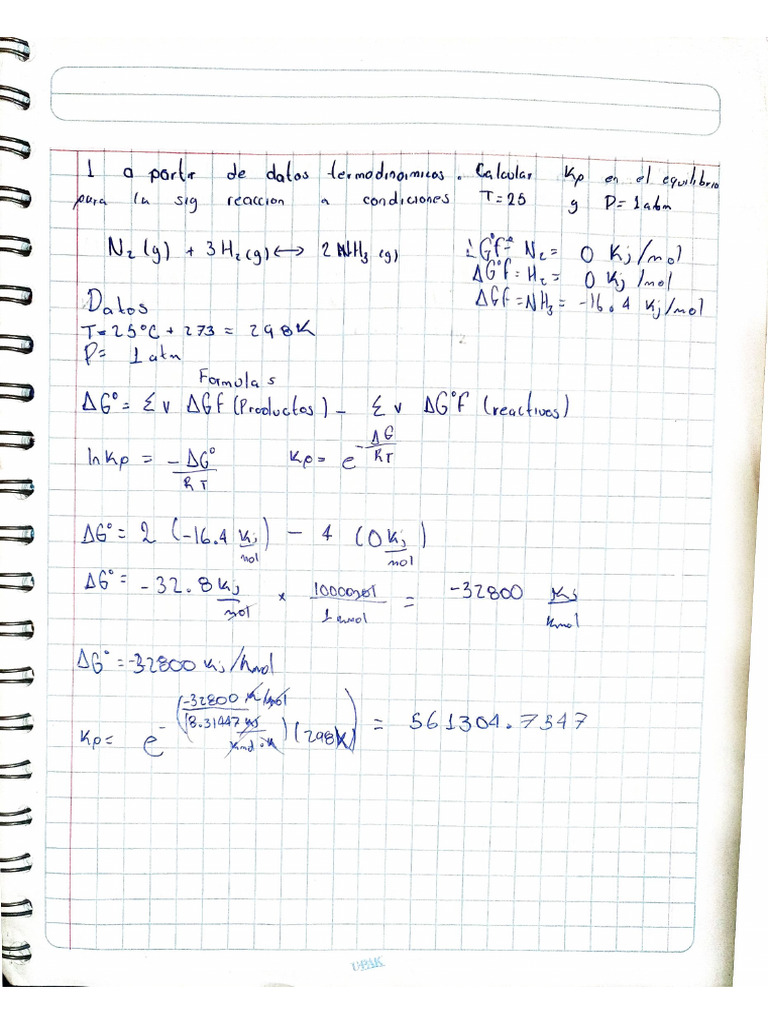 1 a partir de datos termodinamicos. Calcular Kp en el equilibrio
para la sig reaccion a condiciones T=25 y P=1atm
N₂(g) + 3H₂(g) ↔ 2NH₃(g)
ΔG°f= N₂= 0 Kj/mol
ΔG°f=H₂= 0 Kj/mol
ΔGf=NH₃= -16.4 Kj/mol
Datos
T=25°C+273=298K
P= 1atm
Formulas
ΔG°= Σ v ΔGf(Productos) - Σ v ΔG°f (reactivos)
lnKp = -ΔG°/RT Kp= e^-ΔG/RT
ΔG°= 2 (-16.4 Kj/mol) - 4 (0 Kj/mol)
ΔG°= -32.8 Kj/mol * = -32800 Kj/Kmol
ΔG°=-32800 Kj/Kmol
Kp= e^-((-32800 /8.31447 )(298K)) = 561304.7347
UPAK